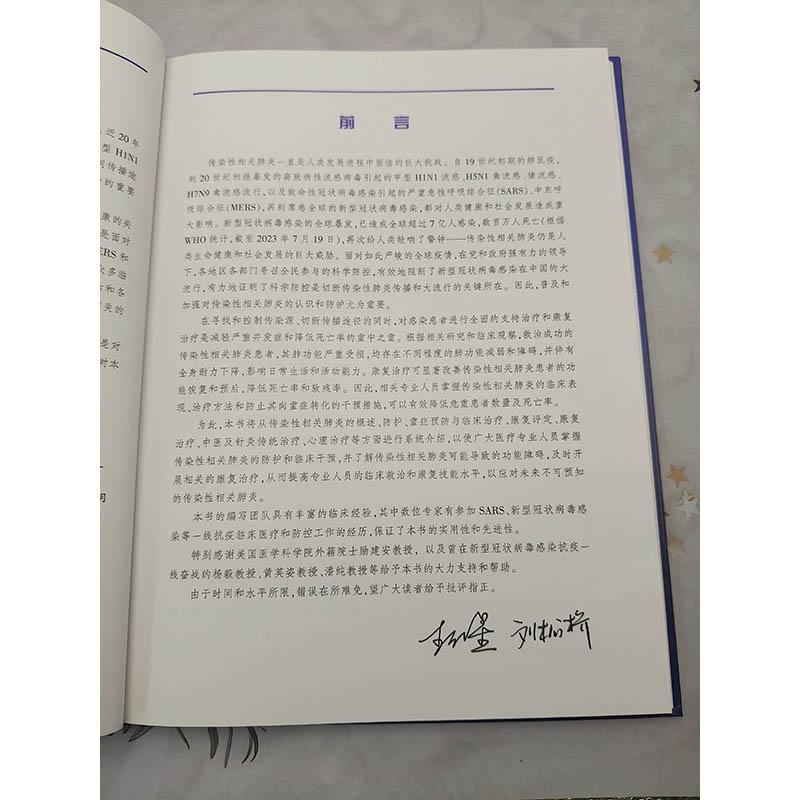 近20年
型 H1N1
制传播途
的重要
康的关
是面对
ERS 和
众多临
估和各
相关的
是对
对本
同
前 言
传染性相关肺炎一直是人类发展进程中面临的巨大挑战。自19世纪初期的肺鼠疫,
到20世纪相继暴发的高致病性流感病毒引起的甲型H1N1流感、H5N1禽流感、猪流感、
H7N9禽流感流行,以及致命性冠状病毒感染引起的严重急性呼吸综合征(SARS)、中东呼
吸综合征(MERS),再到席卷全球的新型冠状病毒感染,都对人类健康和社会发展造成重
大影响。新型冠状病毒感染的全球暴发,已造成全球超过7亿人感染,数百万人死亡(根据
WHO统计,截至2023年7月19日),再次给人类敲响了警钟——传染性相关肺炎仍是人
类生命健康和社会发展的巨大威胁。面对如此严峻的全球疫情,在党和政府强有力的领导
下,各地区各部门号召全民参与的科学防控,有效地阻断了新型冠状病毒感染在中国的大
流行,有力地证明了科学防控是切断传染性肺炎传播和大流行的关键所在。因此,普及和
加强对传染性相关肺炎的认识和防护尤为重要。
在寻找和控制传染源、切断传播途径的同时,对感染患者进行全面的支持治疗和康复
治疗是减轻严重并发症和降低死亡率的重中之重。根据相关研究和临床观察,救治成功的
传染性相关肺炎患者,其肺功能严重受损,均存在不同程度的肺功能减弱和障碍,并伴有
全身耐力下降,影响日常生活和活动能力。康复治疗可显著改善传染性相关肺炎患者的功
能恢复和预后,降低死亡率和致残率。因此,相关专业人员掌握传染性相关肺炎的临床表
现、治疗方法和防止其向重症转化的干预措施,可以有效降低危重患者数量及死亡率。
为此,本书将从传染性相关肺炎的概述、防护、重症预防与临床治疗、康复评定、康复
治疗、中医及针灸传统治疗、心理治疗等方面进行系统介绍,以使广大医疗专业人员掌握
传染性相关肺炎的防护和临床干预,并了解传染性相关肺炎可能导致的功能障碍,及时开
展相关的康复治疗,从而提高专业人员的临床救治和康复技能水平,以应对未来不可预知
的传染性相关肺炎。
本书的编写团队具有丰富的临床经验,其中数位专家有参加SARS、新型冠状病毒感
染等一线抗疫临床医疗和防控工作的经历,保证了本书的实用性和先进性。
特别感谢美国医学科学院外籍院士励建安教授,以及曾在新型冠状病毒感染抗疫一
线奋战的杨毅教授、黄英姿教授、潘纯教授等给予本书的大力支持和帮助。
由于时间和水平所限,错误在所难免,望广大读者给予批评指正。